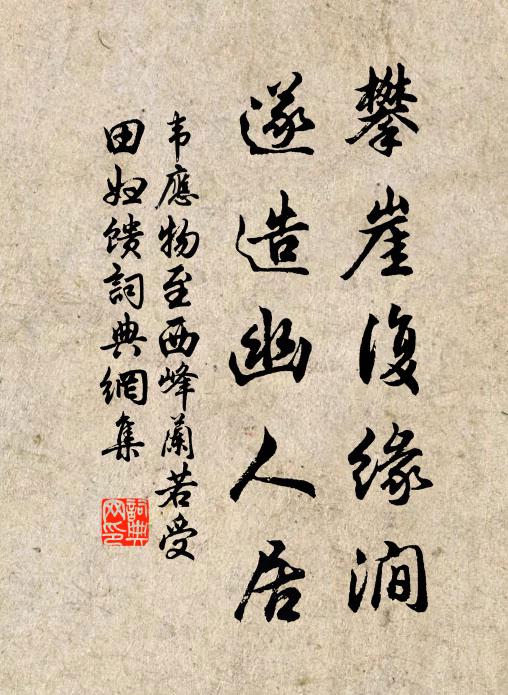 攀崖復缘澗
遂造幽人居
韦應物至西峰蘭若受
田妇馈詞典網集
詞典網印